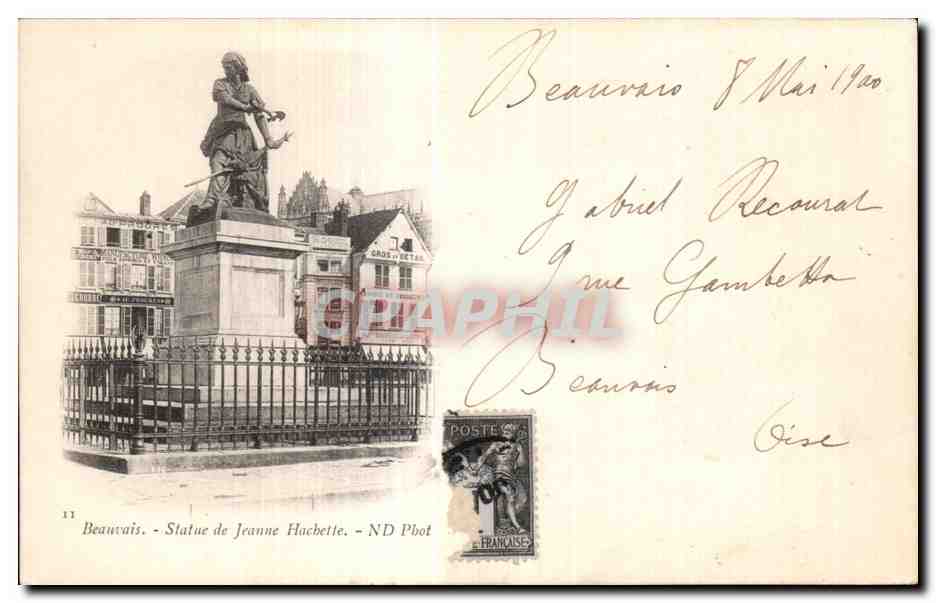 Beauvais 8 Mai 1900
Gabriel Recourat
9 rue Gambetta
Beauvais
Oise
GROS ET DETAIL
CPARAMA
CPAPHIL
POSTE
FRANÇAISE
11
Beauvais. - Statue de Jeanne Hachette. - ND Phot